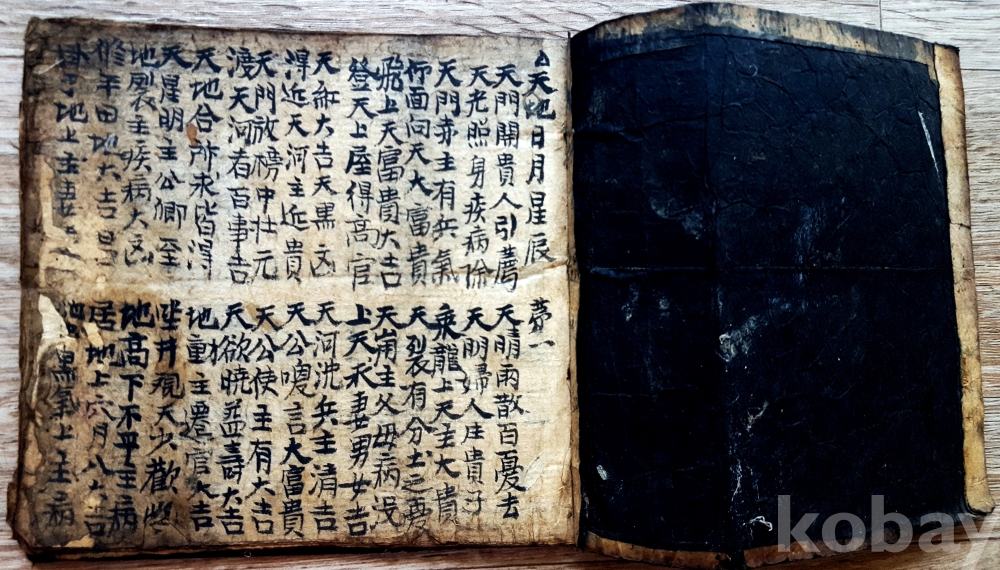 △天地日月星辰 夢一
天門開貴人引薦 天晴雨散百憂去
天光照身疾病除 天明婦人生貴子
天門赤主有兵氣 乘龍上天主大貴
仰面向天大富貴 天裂有分土之憂
飛上天富貴大吉 天崩主父母病
登天上屋得高官 上天求妻男女吉
天紅大吉天黑凶 天河沈兵主清吉
得近天河主近貴 天公言大富貴
天門放榜中壯元 天公使主有大吉
渡天河者百事吉 天欲曉益壽大吉
天地合所求皆得 地重主遷官大吉
天星明主公卿至 坐井觀天少歡些
地裂主疾病大凶 地高下不平主病
修平田地大吉 居地上六月八大吉
地上主妻 黑氣上主病
kobay